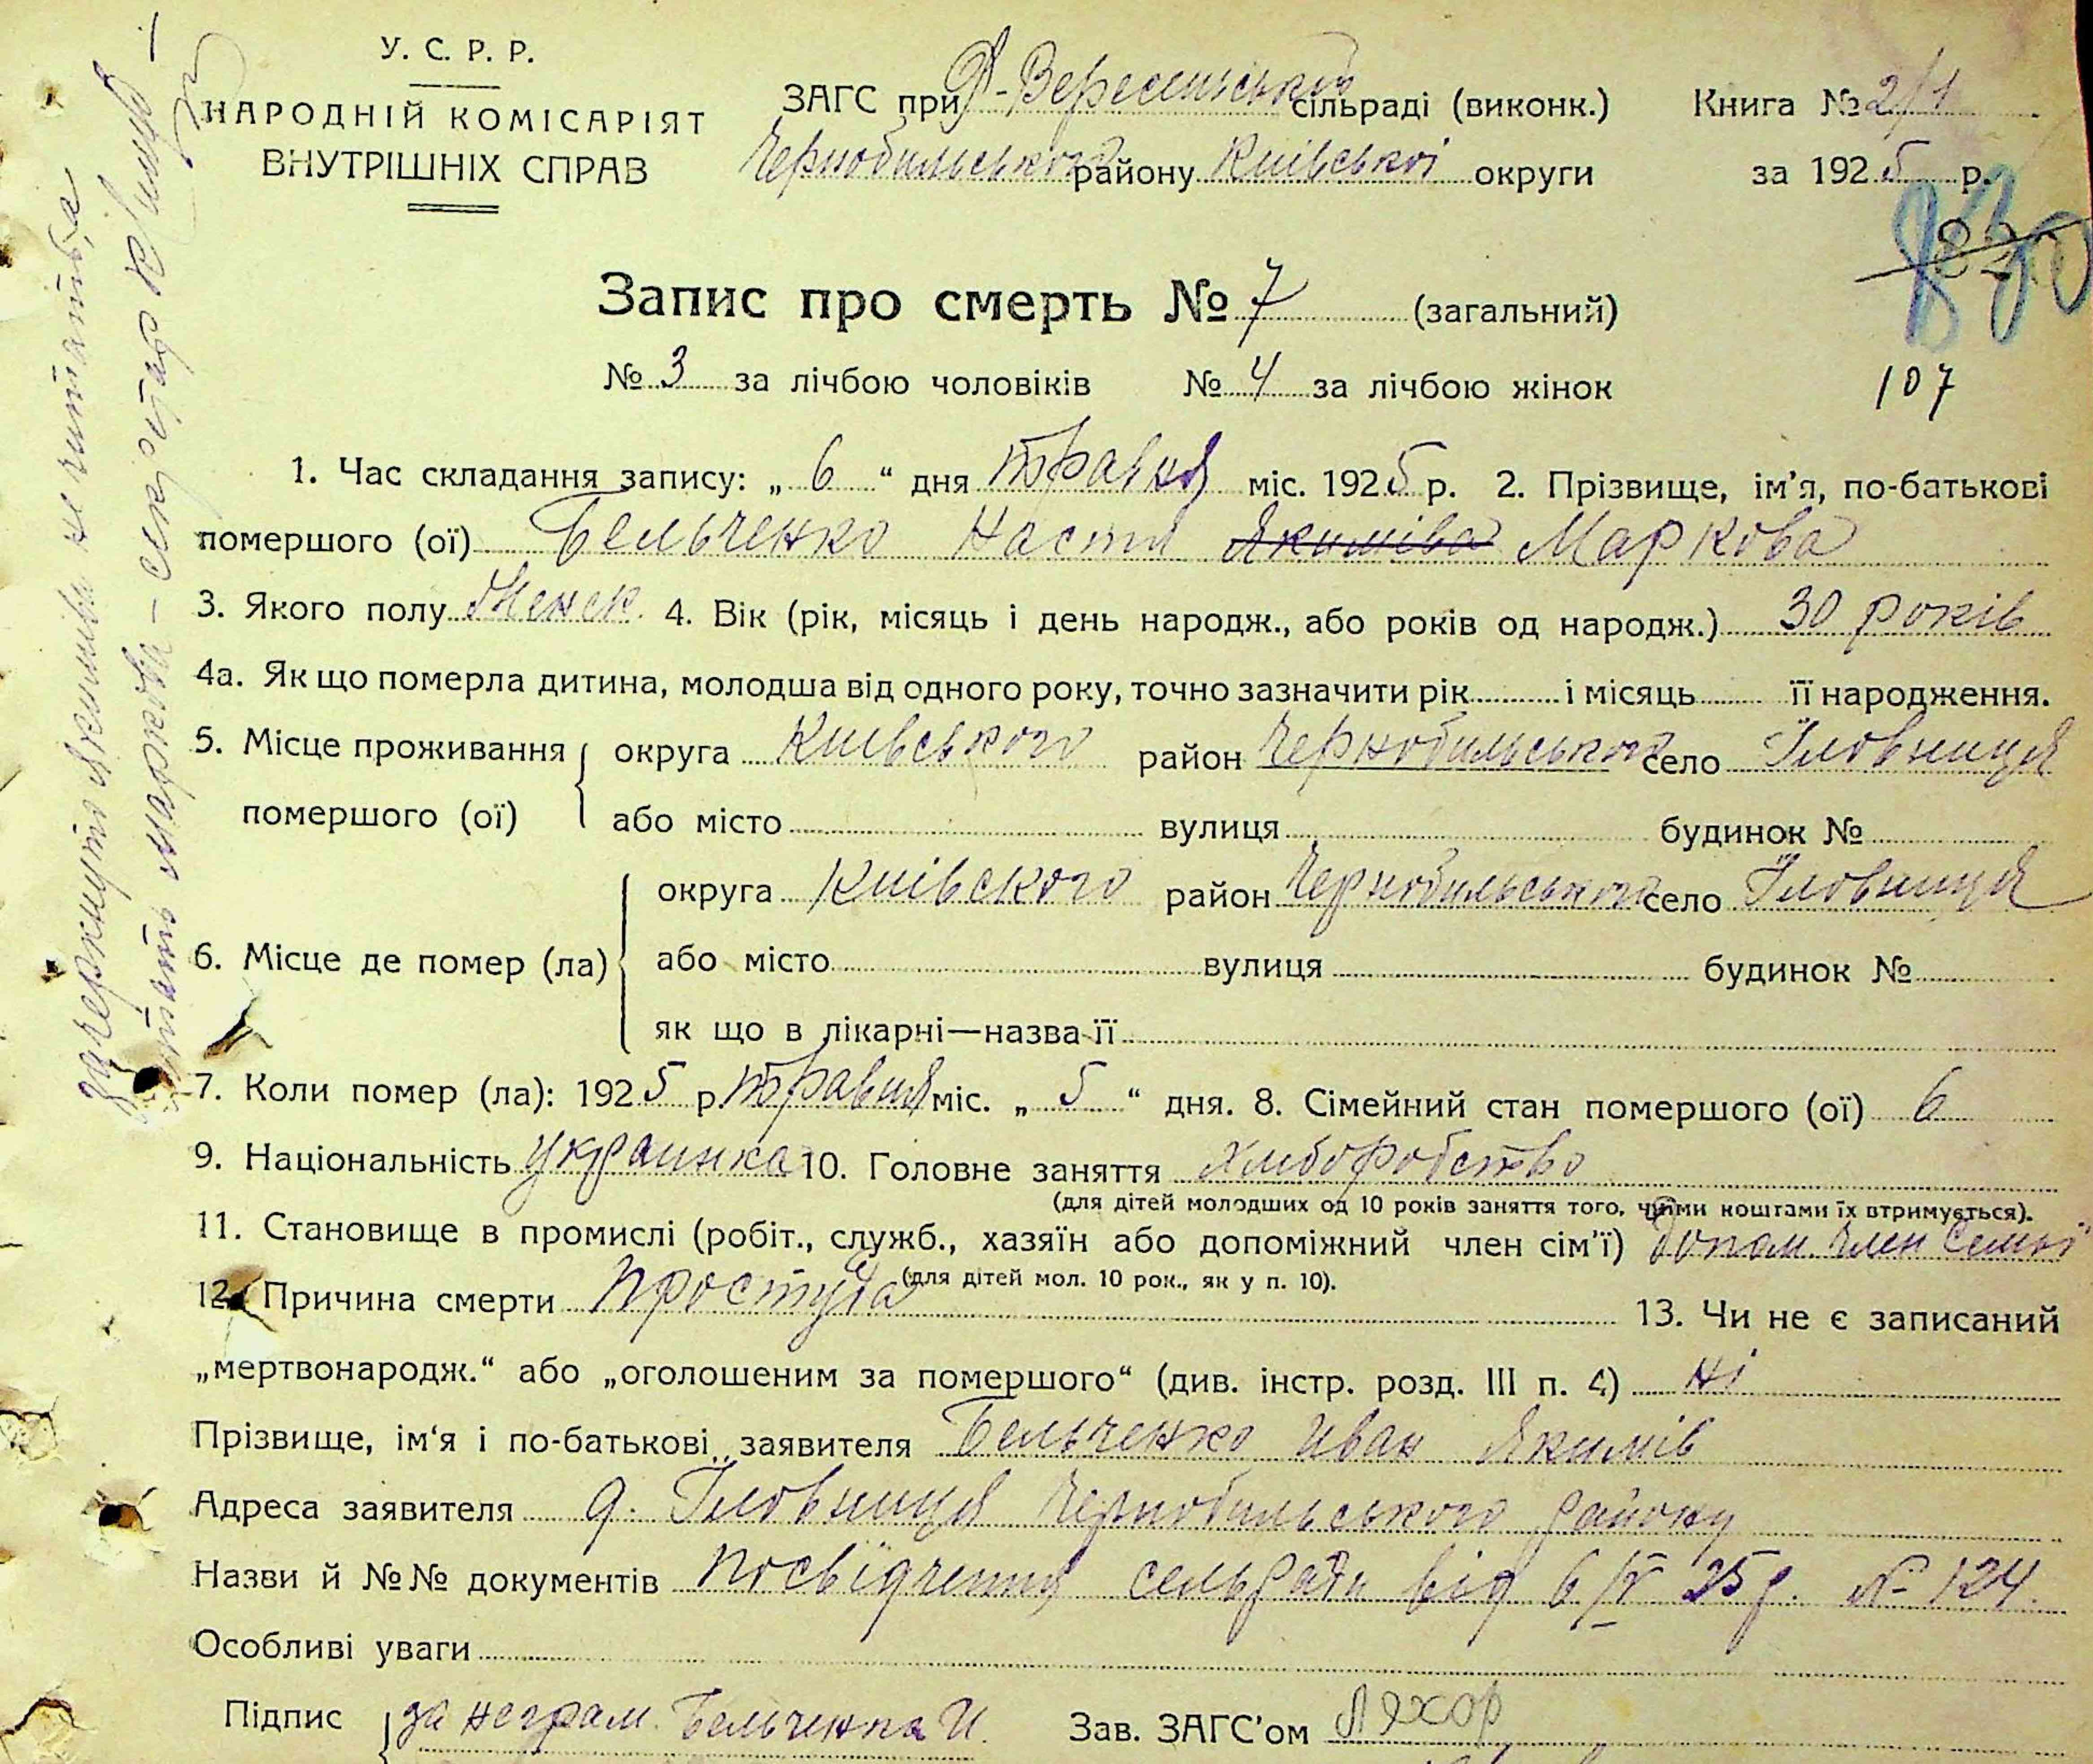 У. С. Р. Р.
НАРОДНІЙ КОМІСАРІЯТ
ВНУТРІШНІХ СПРАВ
ЗАГС при сільраді (виконк.)
Чернобильського району Київської округи
Книга № 2/1
за 1925 р.
Запис про смерть № 7 (загальний)
№ 3 за лічбою чоловіків № 4 за лічбою жінок
107
1. Час складання запису: „ 6 “ дня травня міс. 1925 р. 2. Прізвище, ім'я, по-батькові
помершого (ої) Бельченко Настя Якимівна Маркова
3. Якого полу Женск. 4. Вік (рік, місяць і день народж., або років од народж.) 30 років
4а. Як що померла дитина, молодша від одного року, точно зазначити рік і місяць її народження.
5. Місце проживання помершого (ої) округа Київського район Чернобильського село Іловниця
або місто вулиця будинок №
6. Місце де помер (ла) округа Київского район Чернобильського село Іловниця
або місто вулиця будинок №
як що в лікарні—назва її
7. Коли помер (ла): 1925 р. травня міс. „ 5 “ дня. 8. Сімейний стан помершого (ої) 6
9. Національність украинка 10. Головне заняття хлиборобство
(для дітей молодших од 10 років заняття того, чиїми коштами їх втримується).
11. Становище в промислі (робіт., служб., хазяїн або допоміжний член сім'ї) допом. член семьї
(для дітей мол. 10 рок., як у п. 10).
12. Причина смерти простуда 13. Чи не є записаний
„мертвонародж.“ або „оголошеним за помершого“ (див. інстр. розд. III п. 4) ні
Прізвище, ім'я і по-батькові заявителя Бельченко Иван Якимів
Адреса заявителя д. Іловниця Чернобильського району
Назви й №№ документів посвідчення сельради від 6/V 25 р. № 124.
Особливі уваги
Підпис за неграм. Бельченка И. Зав. ЗАГС'ом Ляхор
зачеркнуто Якимівна не читать, а
читать Маркова – секретар